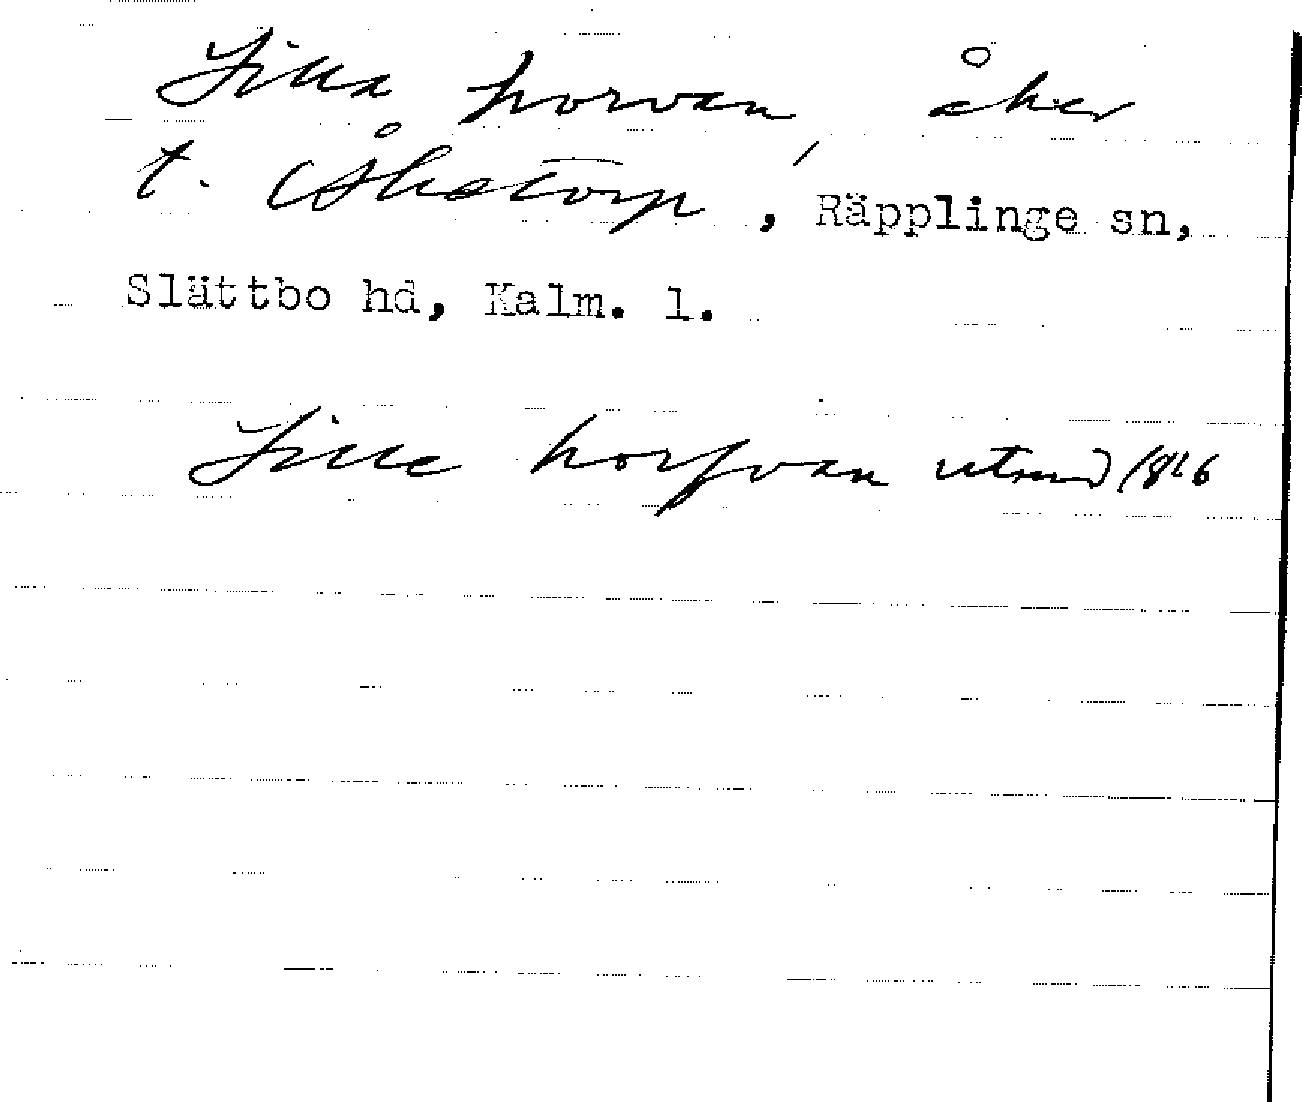 Lilla horvan, åker
t. Åketorp, Räpplinge sn,
Slättbo hd, Kalm. l.
Lille horfvan